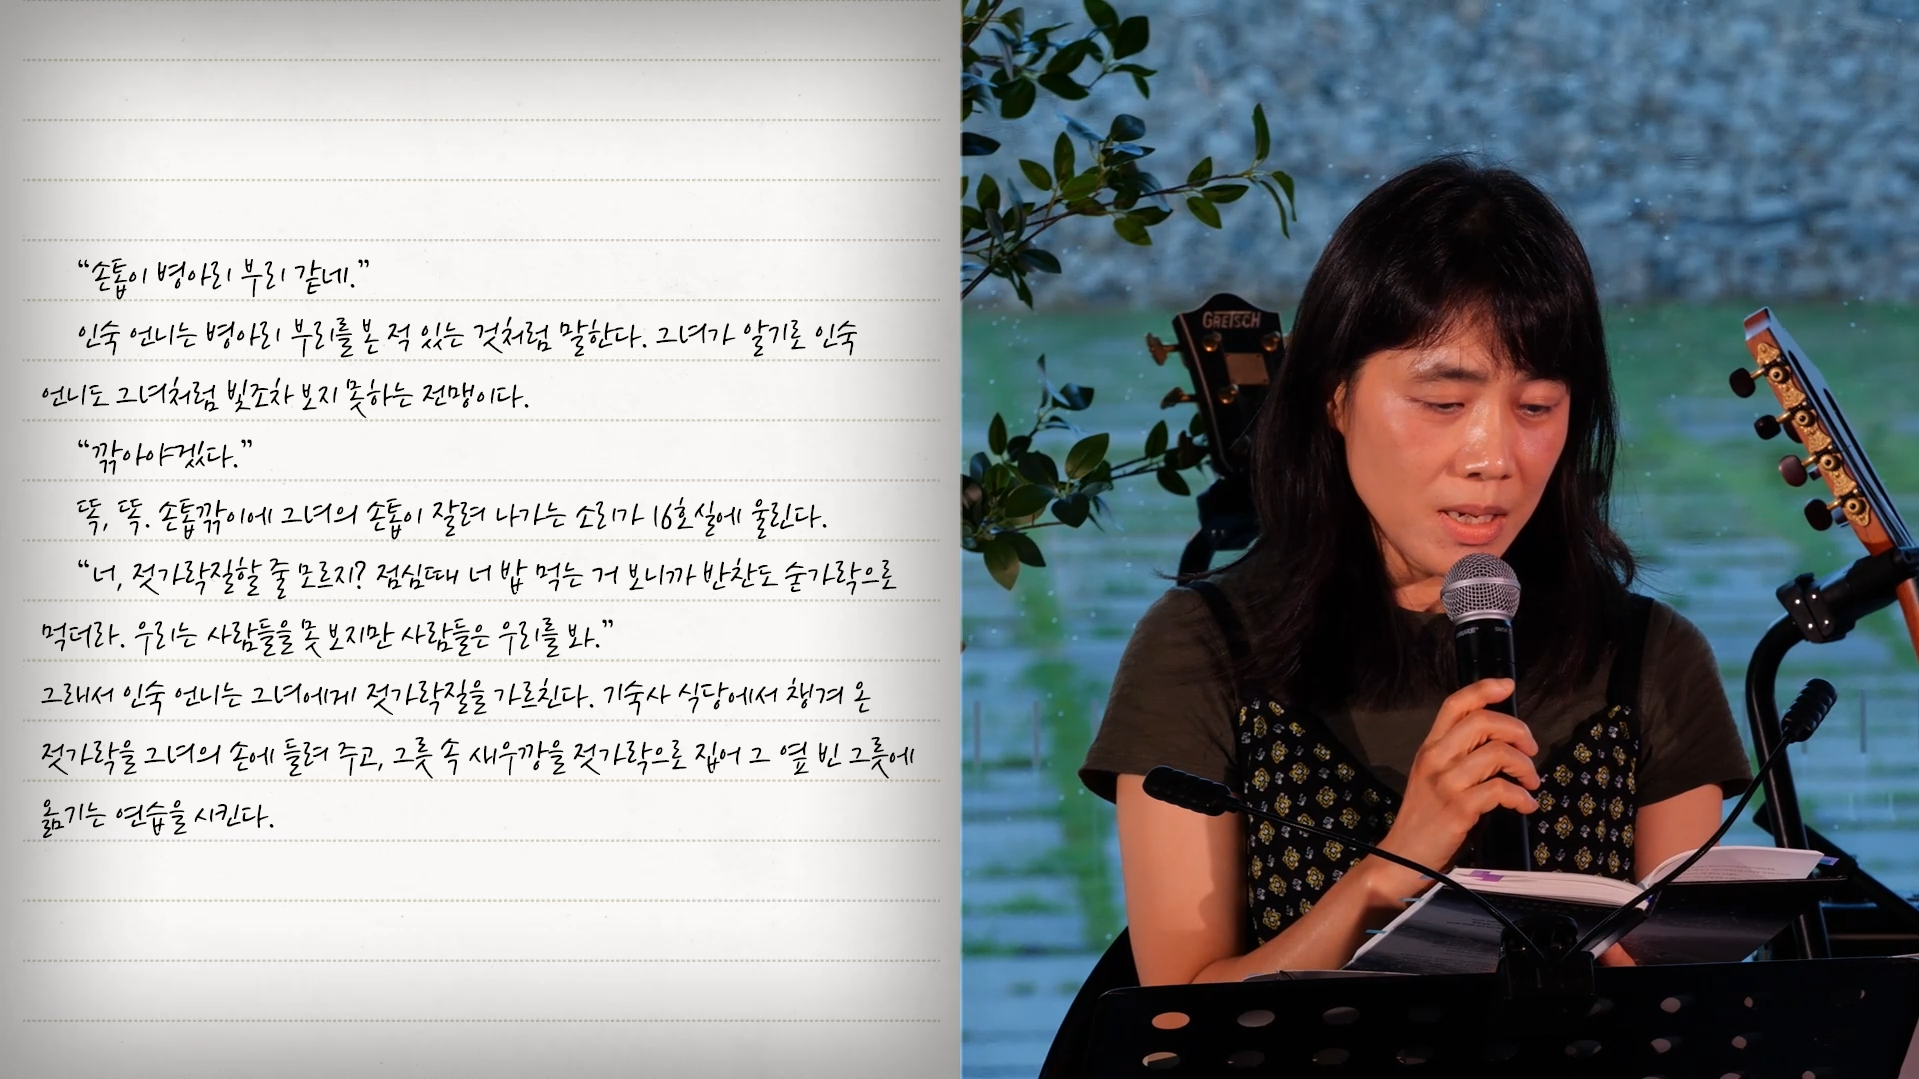 “손톱이 병아리 부리 같네.”
인숙 언니는 병아리 부리를 본 적 있는 것처럼 말한다. 그녀가 알기로 인숙
언니도 그녀처럼 빛조차 보지 못하는 전맹이다.
“깎아야겠다.”
똑, 똑. 손톱깎이에 그녀의 손톱이 잘려 나가는 소리가 16호실에 울린다.
“너, 젓가락질할 줄 모르지? 점심때 너 밥 먹는 거 보니까 반찬도 숟가락으로
먹더라. 우리는 사람들을 못 보지만 사람들은 우리를 봐.”
그래서 인숙 언니는 그녀에게 젓가락질을 가르친다. 기숙사 식당에서 챙겨 온
젓가락을 그녀의 손에 들려 주고, 그릇 속 새우깡을 젓가락으로 집어 그 옆 빈 그릇에
옮기는 연습을 시킨다.
GRETSCH